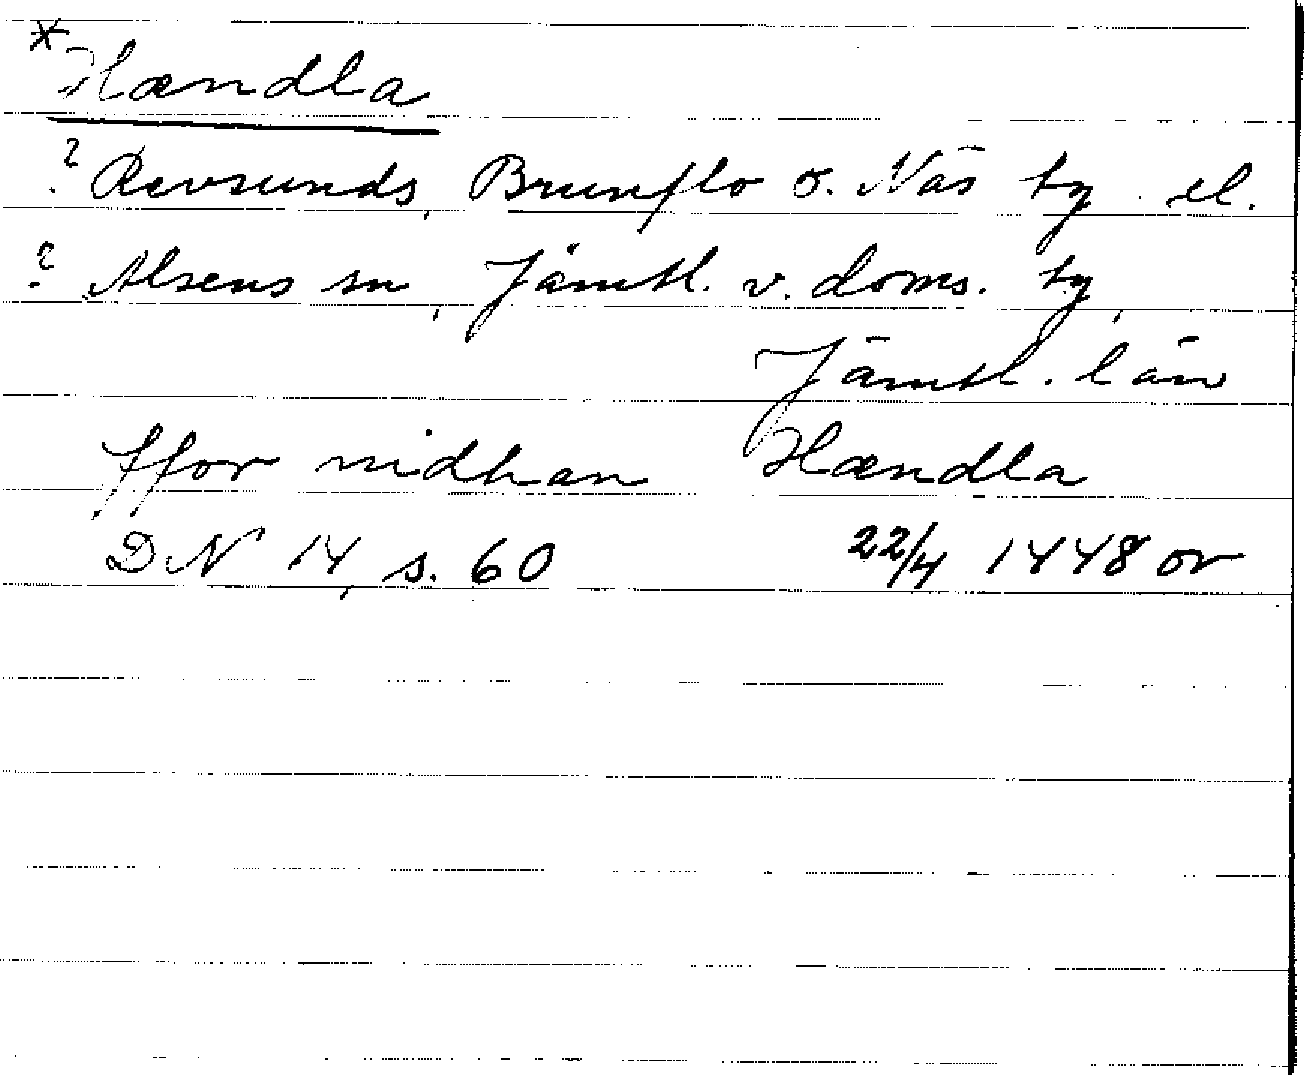 *Hændla
? Revsunds, Brunflo o. Näs tg el.
? Alsens sn, Jämtl. v. doms. tg,
Jämtl. län
ffor nidhan Hændla
DN 14, s. 60 22/4 1448 or